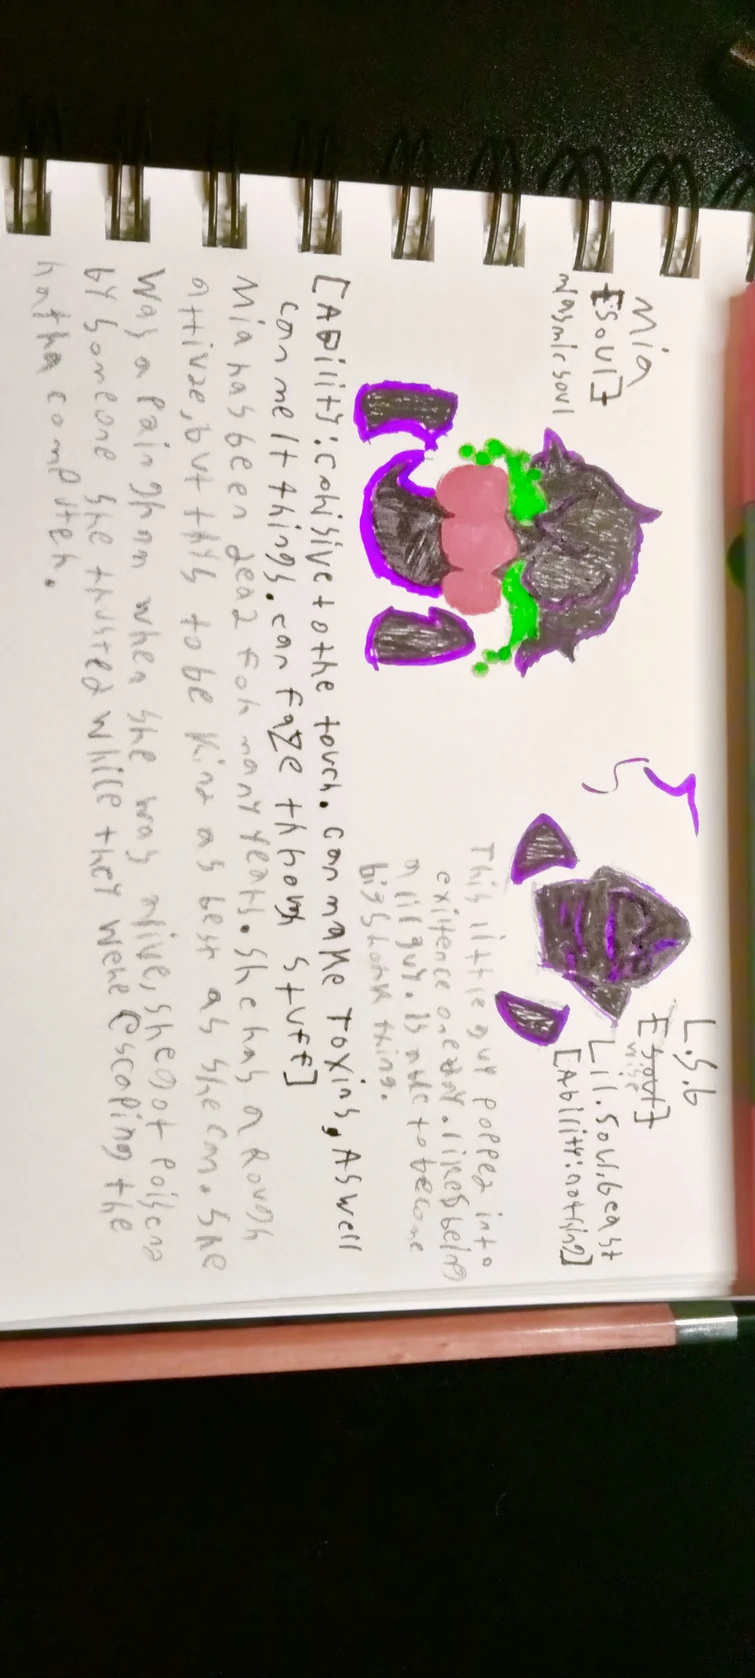 Mia
[Soul]
L.S.b
[Soul]
Lil.soul.beast
[Ability:nothing]
This little guy popped into
existence one day. likes being
a lil guy. is able to become
big shonk thing.
[Ability: cohisive to the touch. can make toxins, Aswell
can melt things. can faze through stuff]
Mia has been dead for many years. she has a rough
attivze, but tkys to be kind as best as she can. she
was a pain when she was alive, she got poisend
by someone she trusted while they were escaping the
hatha computer.